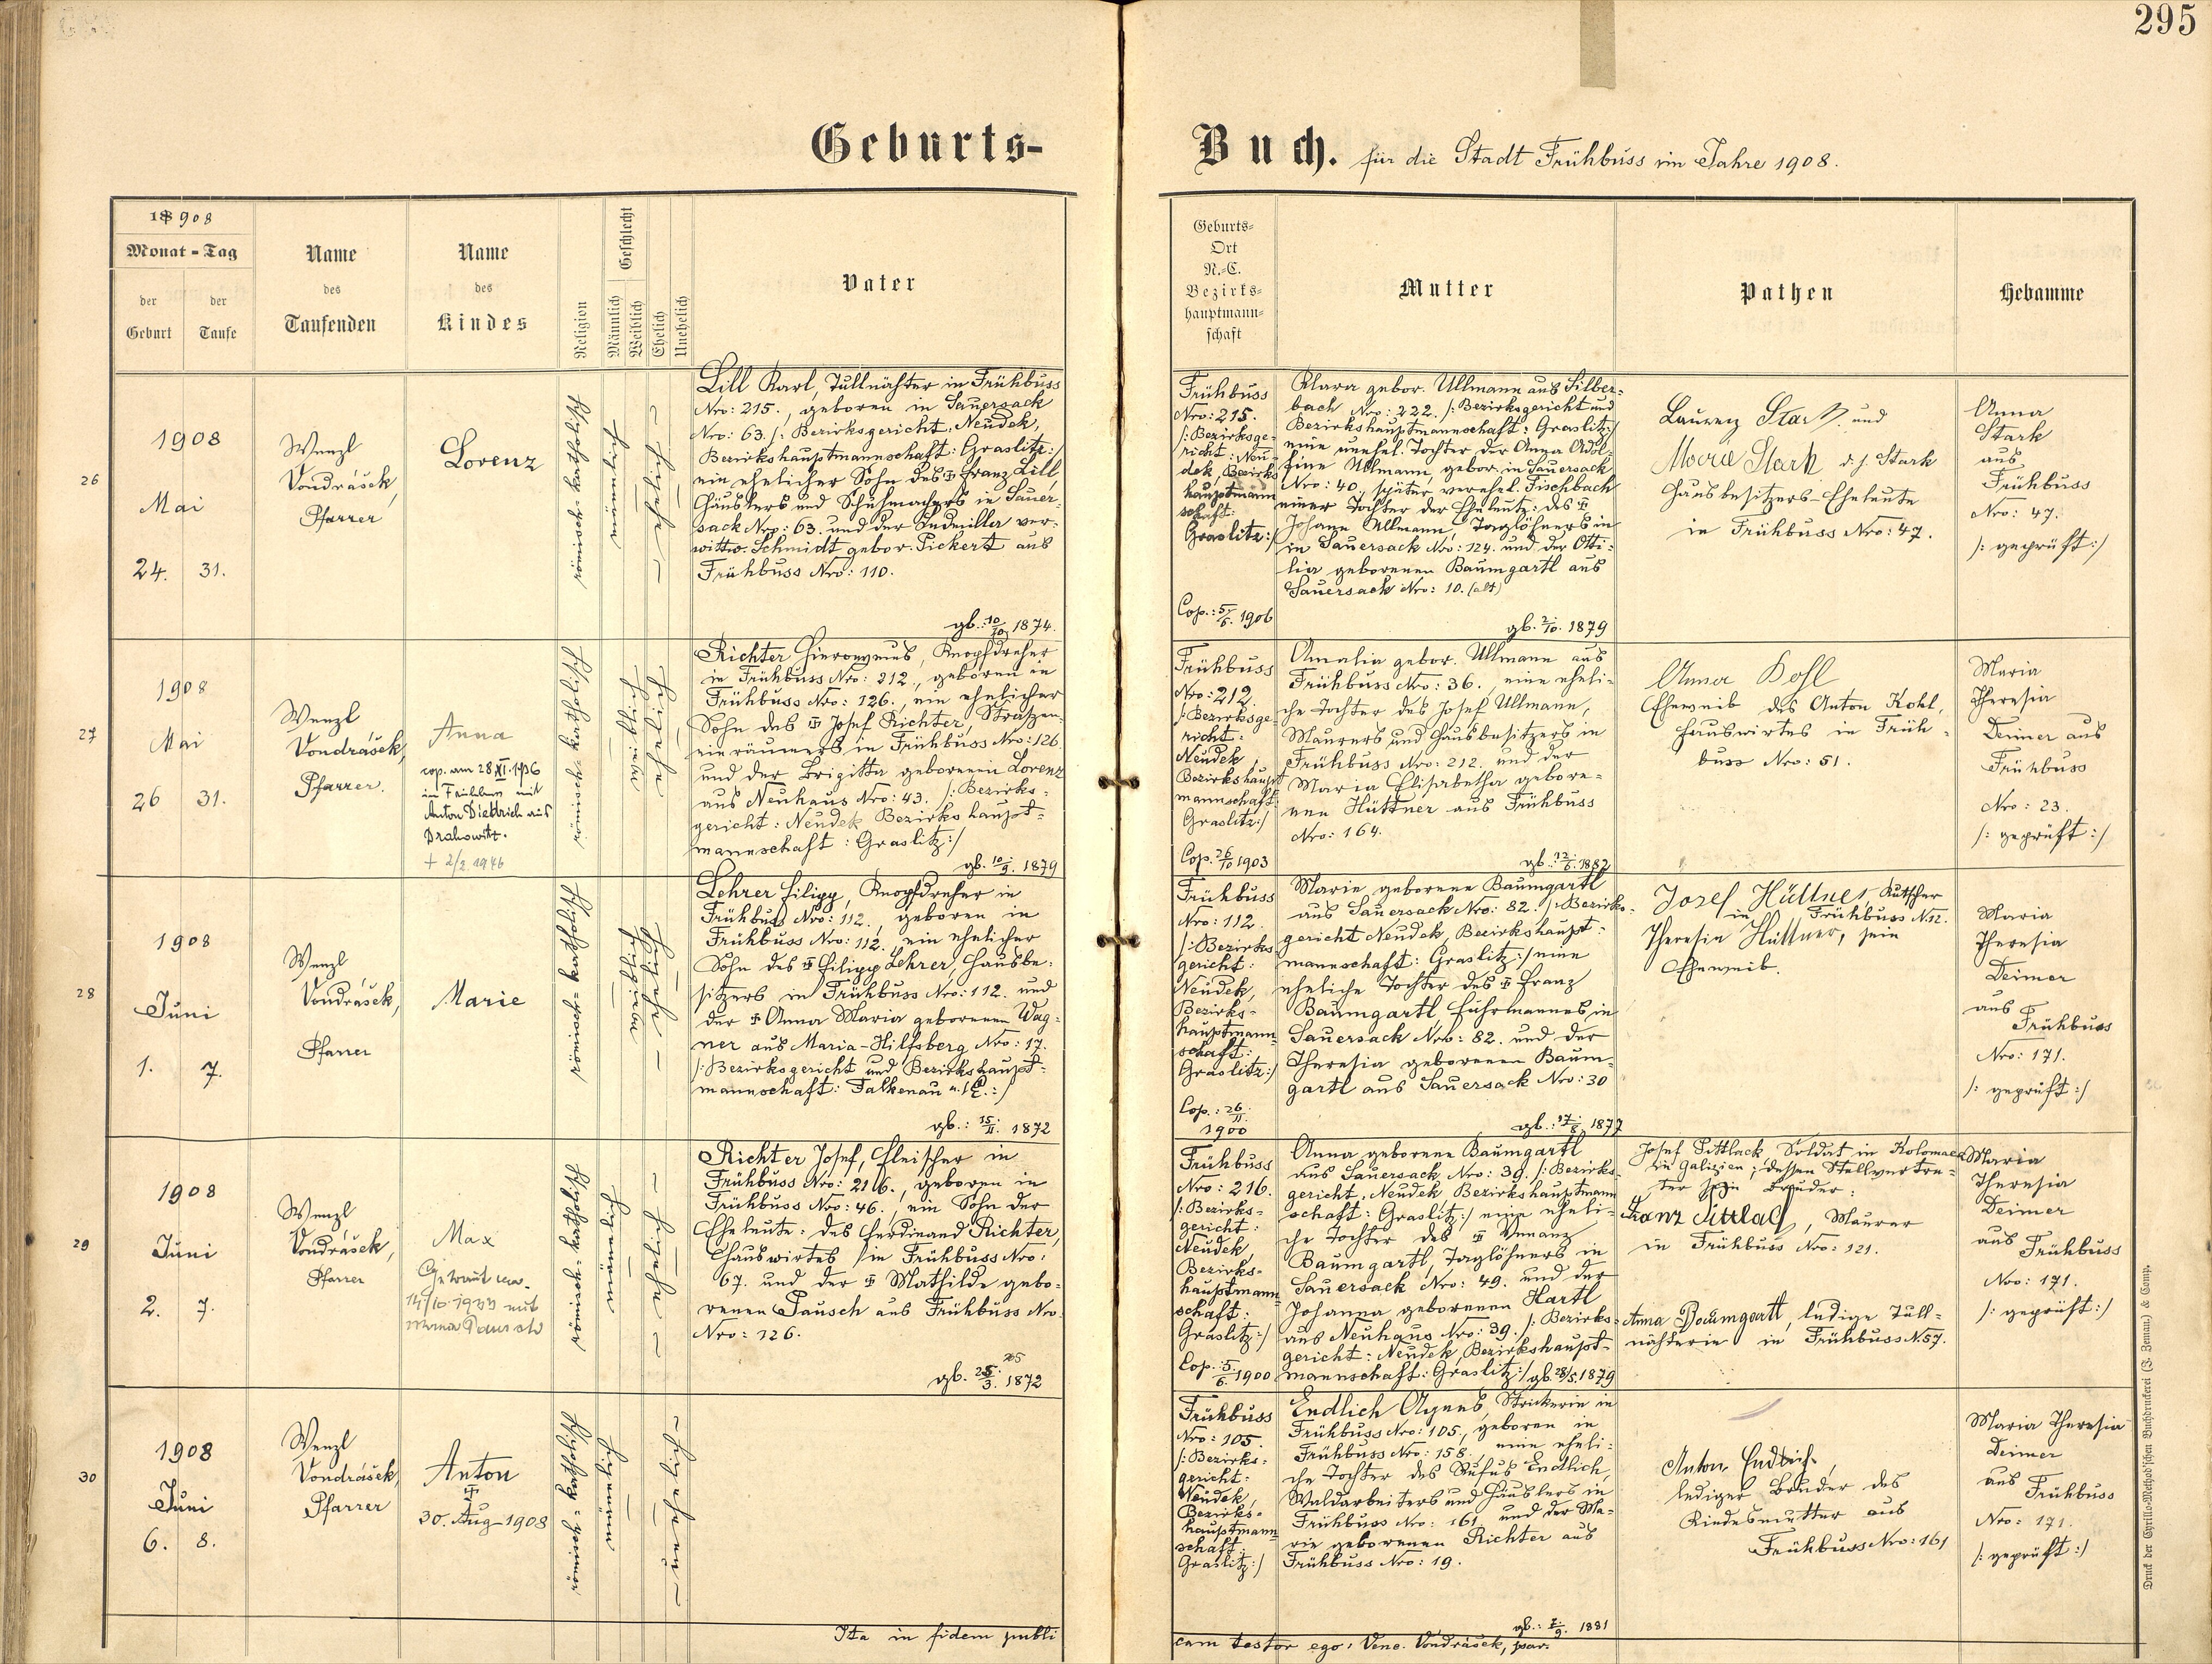 295
Geburts-
Buch. für die Stadt Frühbuss im Jahre 1908.
18 908
Monat - Tag
der Geburt
der Taufe
Name des Taufenden
Name des Kindes
Religion
Geschlecht
Männlich
Weiblich
Ehelich
Unehelich
Vater
Geburts-
Ort
N.-C.
Bezirks-
hauptmann-
schaft
Mutter
Pathen
Hebamme
26
1908
Mai
24. 31.
Wenzl
Vondrášek,
Pfarrer
Lorenz
römisch-katholisch
Lill Karl, Tüllnähter in Frühbuss
Nro: 215., geboren in Sauersack
Nro: 63. /: Bezirksgericht: Neudek,
Bezirkshauptmannschaft: Graslitz:/
ein ehelicher Sohn des Franz Lill,
Häuslers und Schuhmachers in Sauer-
sack Nro: 63. und der Ludmilla ver-
wittw. Schmidt gebor. Pickert aus
Frühbuss Nro: 110.
gb.: 10/10 1874.
Frühbuss
Nro: 215.
/: Bezirksge-
richt: Neu-
dek, Bezirks
hauptmann
schaft:
Graslitz:/
Cop.: 5/6. 1906
Klara gebor. Ullmann aus Silber-
bach Nro: 222. /: Bezirksgericht und
Bezirkshauptmannschaft: Graslitz:/
eine unehel. Tochter der Anna Adol-
fine Ullmann, gebor. in Sauersack
Nro: 40., später verehel. Fischbach
einer Tochter der Eheleute: des
Johann Ullmann, Taglöhners in
in Sauersack Nro: 124. und der Otti-
lia geborenen Baumgartl aus
Sauersack Nro: 10. (alt)
gb. 2/10. 1879
Laurenz Stark und
Marie Stark d. j. Stark
Hausbesitzers-Eheleute
in Frühbuss Nro: 47.
Anna
Stark
aus
Frühbuss
Nro: 47.
/: geprüft:/
27
1908
Mai
26 31.
Wenzl
Vondrášek,
Pfarrer.
Anna
cop. am 28.XI.1936
in Frühbuss mit
Anton Dietrich aus
Drahowitz.
+ 2/2. 1946
römisch-katholisch
Richter Hieronymus, Knopfdreher
in Frühbuss Nro: 212., geboren in
Frühbuss Nro: 126., ein ehelicher
Sohn des Josef Richter, Strassen-
einräumers in Frühbuss Nro: 126.
und der Brigitta geborenen Lorenz
aus Neuhaus Nro: 43. /: Bezirks-
gericht: Neudek Bezirkshaupt-
mannschaft: Graslitz:/
gb. 10/9. 1879
Frühbuss
Nro: 212.
/: Bezirksge-
richt:
Neudek,
Bezirkshaupt
mannschaft:
Graslitz:/
Cop. 26/10 1903
Amalia gebor. Ullmann aus
Frühbuss Nro: 36., eine eheli-
che Tochter des Josef Ullmann,
Maurers und Hausbesitzers in
Frühbuss Nro: 212. und der
Maria Elisabetha gebore-
nen Hüttner aus Frühbuss
Nro: 164.
gb.: 12/6. 1882
Anna Kohl
Eheweib des Anton Kohl,
Hauswirtes in Früh-
buss Nro: 51.
Maria
Theresia
Deimer aus
Frühbuss
Nro: 23.
/: geprüft:/
28
1908
Juni
1. 7.
Wenzl
Vondrášek,
Pfarrer
Marie
römisch-katholisch
Lehrer Filipp, Knopfdreher in
Frühbuss Nro: 112., geboren in
Frühbuss Nro: 112. ein ehelicher
Sohn des Filipp Lehrer, Hausbe-
sitzers in Frühbuss Nro: 112. und
der Anna Maria geborenen Wag-
ner aus Maria-Hilfsberg Nro: 17.
/: Bezirksgericht und Bezirkshaupt-
mannschaft: Falkenau a./E.:/
gb.: 15/11. 1872
Frühbuss
Nro: 112.
/: Bezirks
gericht:
Neudek,
Bezirks-
hauptmann-
schaft:
Graslitz:/
Cop.: 26/11.
1900
Marie geborene Baumgartl
aus Sauersack Nro: 82. /: Bezirks-
gericht Neudek, Bezirkshaupt-
mannschaft: Graslitz:/ eine
eheliche Tochter des Franz
Baumgartl Fuhrmannes in
Sauersack Nro: 82. und der
Theresia geborenen Baum-
gartl aus Sauersack Nro: 30
gb.: 17/8. 1877
Josef Hüttner, Kutscher
in Frühbuss N.12.
Theresia Hüttner, sein
Eheweib.
Maria
Theresia
Deimer
aus
Frühbuss
Nro: 171.
/: geprüft:/
29
1908
Juni
2. 7.
Wenzl
Vondrášek,
Pfarrer
Max
Getraut
14/10. 1933 mit
römisch-katholisch
Richter Josef, Fleischer in
Frühbuss Nro: 216., geboren in
Frühbuss Nro: 46., ein Sohn der
Eheleute: des Ferdinand Richter,
Hauswirtes in Frühbuss Nro:
67. und der Mathilde gebo-
renen Pausch aus Frühbuss Nro.
Nro: 126.
gb. 25/3. 1872
Frühbuss
Nro: 216.
/: Bezirks-
gericht:
Neudek,
Bezirks-
hauptmann
schaft:
Graslitz:/
Cop.: 5/6. 1900
Anna geborene Baumgartl
aus Sauersack Nro: 39. /: Bezirks-
gericht: Neudek Bezirkshauptmann
schaft: Graslitz:/ eine eheli-
che Tochter des Venanz
Baumgartl, Taglöhners in
Sauersack Nro: 49. und der
Johanna geborenen Hartl
aus Neuhaus Nro: 39. /: Bezirks-
gericht: Neudek, Bezirkshaupt-
mannschaft: Graslitz:/ gb. 28/5. 1879
Josef Sittlack, Soldat in Kolomaea
in Galizien; dessen Stellvertre-
ter sein Bruder:
Franz Sittlack, Maurer
in Frühbuss Nro: 121.
Anna Baumgartl, ledige Tüll-
nähterin in Frühbuss N.57.
Maria
Theresia
Deimer
aus
Frühbuss
Nro: 171.
/: geprüft:/
30
1908
Juni
6. 8.
Wenzl
Vondrášek,
Pfarrer
Anton
30. Aug. 1908
römisch-katholisch
Frühbuss
Nro: 105.
/: Bezirks-
gericht:
Neudek,
Bezirks-
hauptmann
schaft:
Graslitz:/
Endlich Agnes, Strickerin in
Frühbuss Nro: 105., geboren in
Frühbuss Nro: 158., eine eheli-
che Tochter des Rufus Endlich,
Waldarbeiters und Häuslers in
Frühbuss Nro: 161. und der Ma-
rie geborenen Richter aus
Frühbuss Nro: 19.
gb.: 7/9. 1881
Anton Endlich,
lediger Bruder des
Kindesmutter aus
Frühbuss Nro: 161
Maria Theresia
Deimer
aus
Frühbuss
Nro: 171.
/: geprüft:/
Ita in fidem publi
cam testor ego: Venc. Vondrášek, par.
Druck der Cyrillo-Method'schen Buchdruckerei (J. Zeman) & Comp.